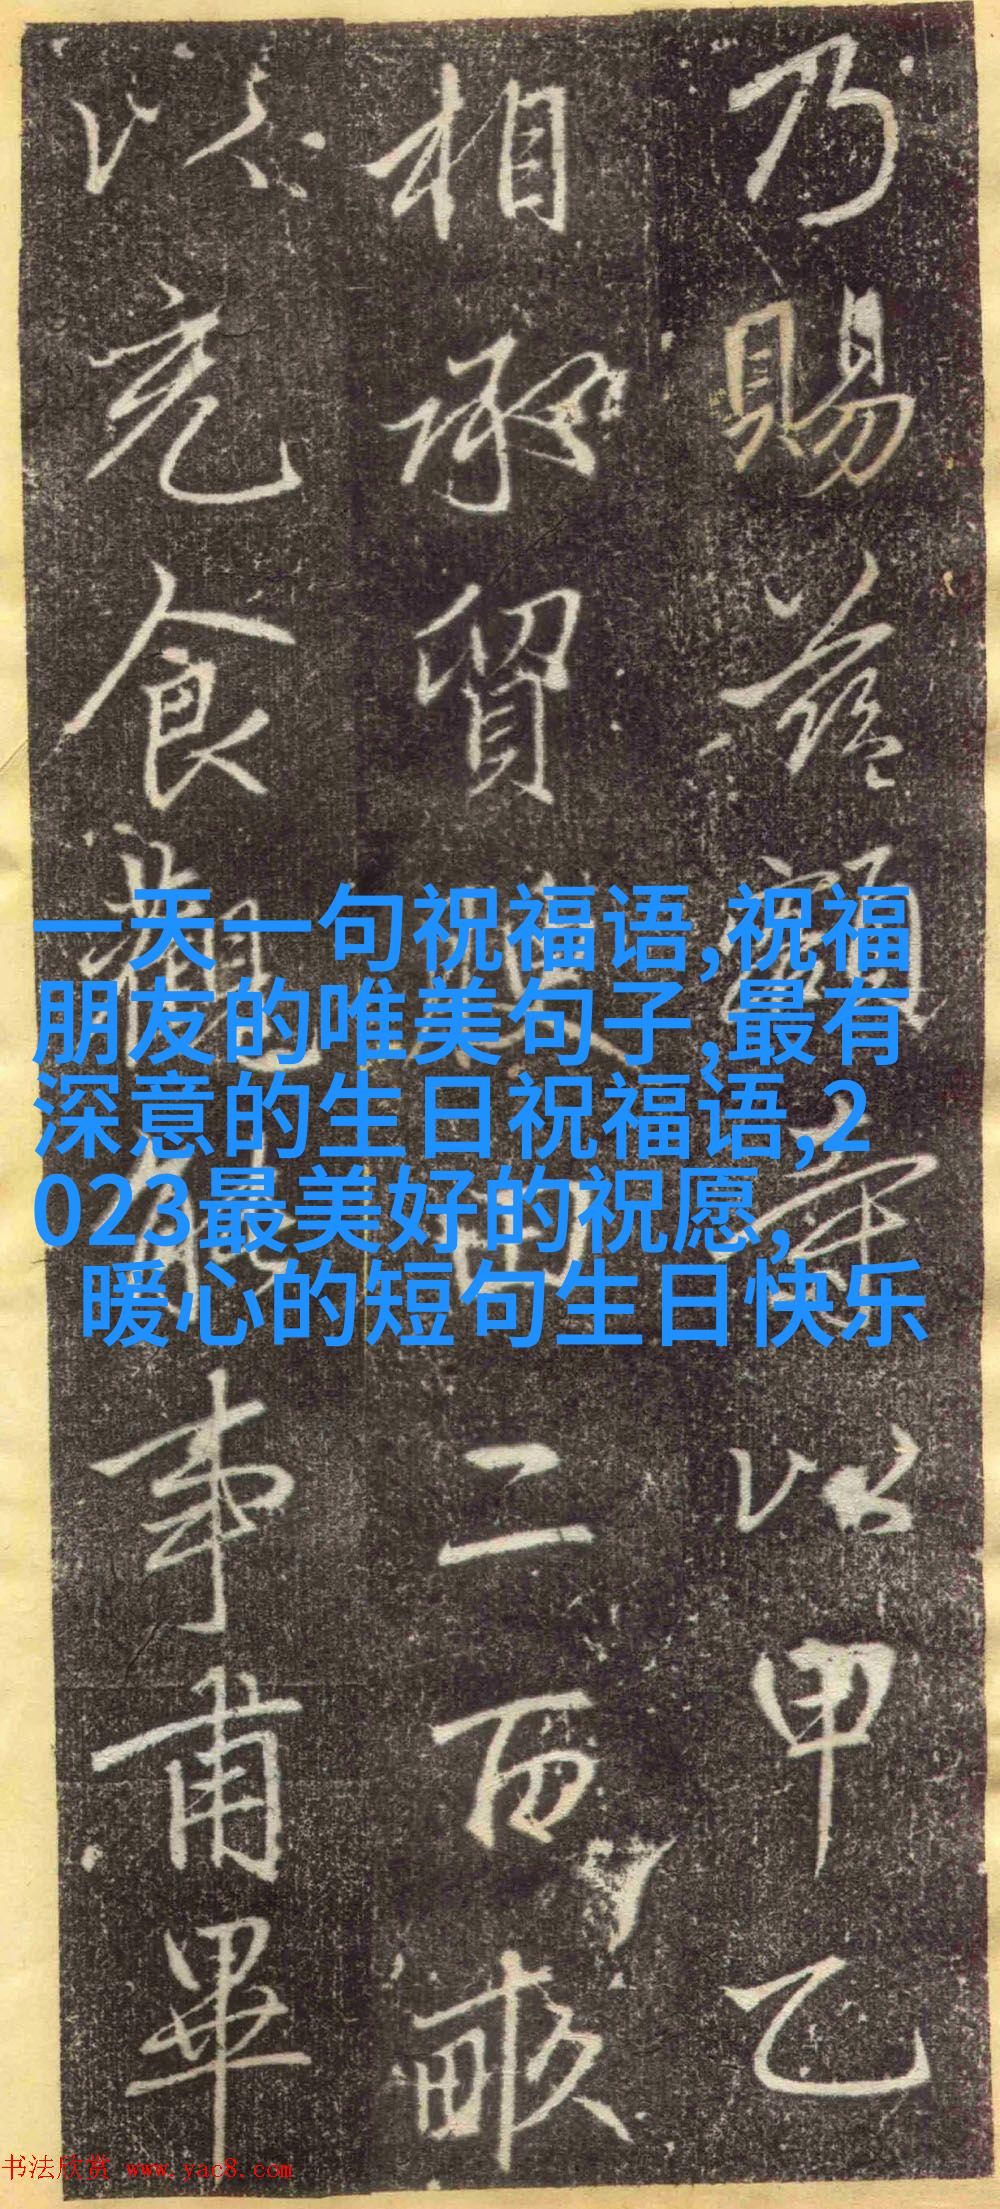 乃賜以甲乙
相承貿二百畝
以充食觀事甫畢
一天一句祝福语,祝福
朋友的唯美句子,最有
深意的生日祝福语,2
023最美好的祝愿,
暖心的短句生日快乐
书法欣赏 www.yac8.com